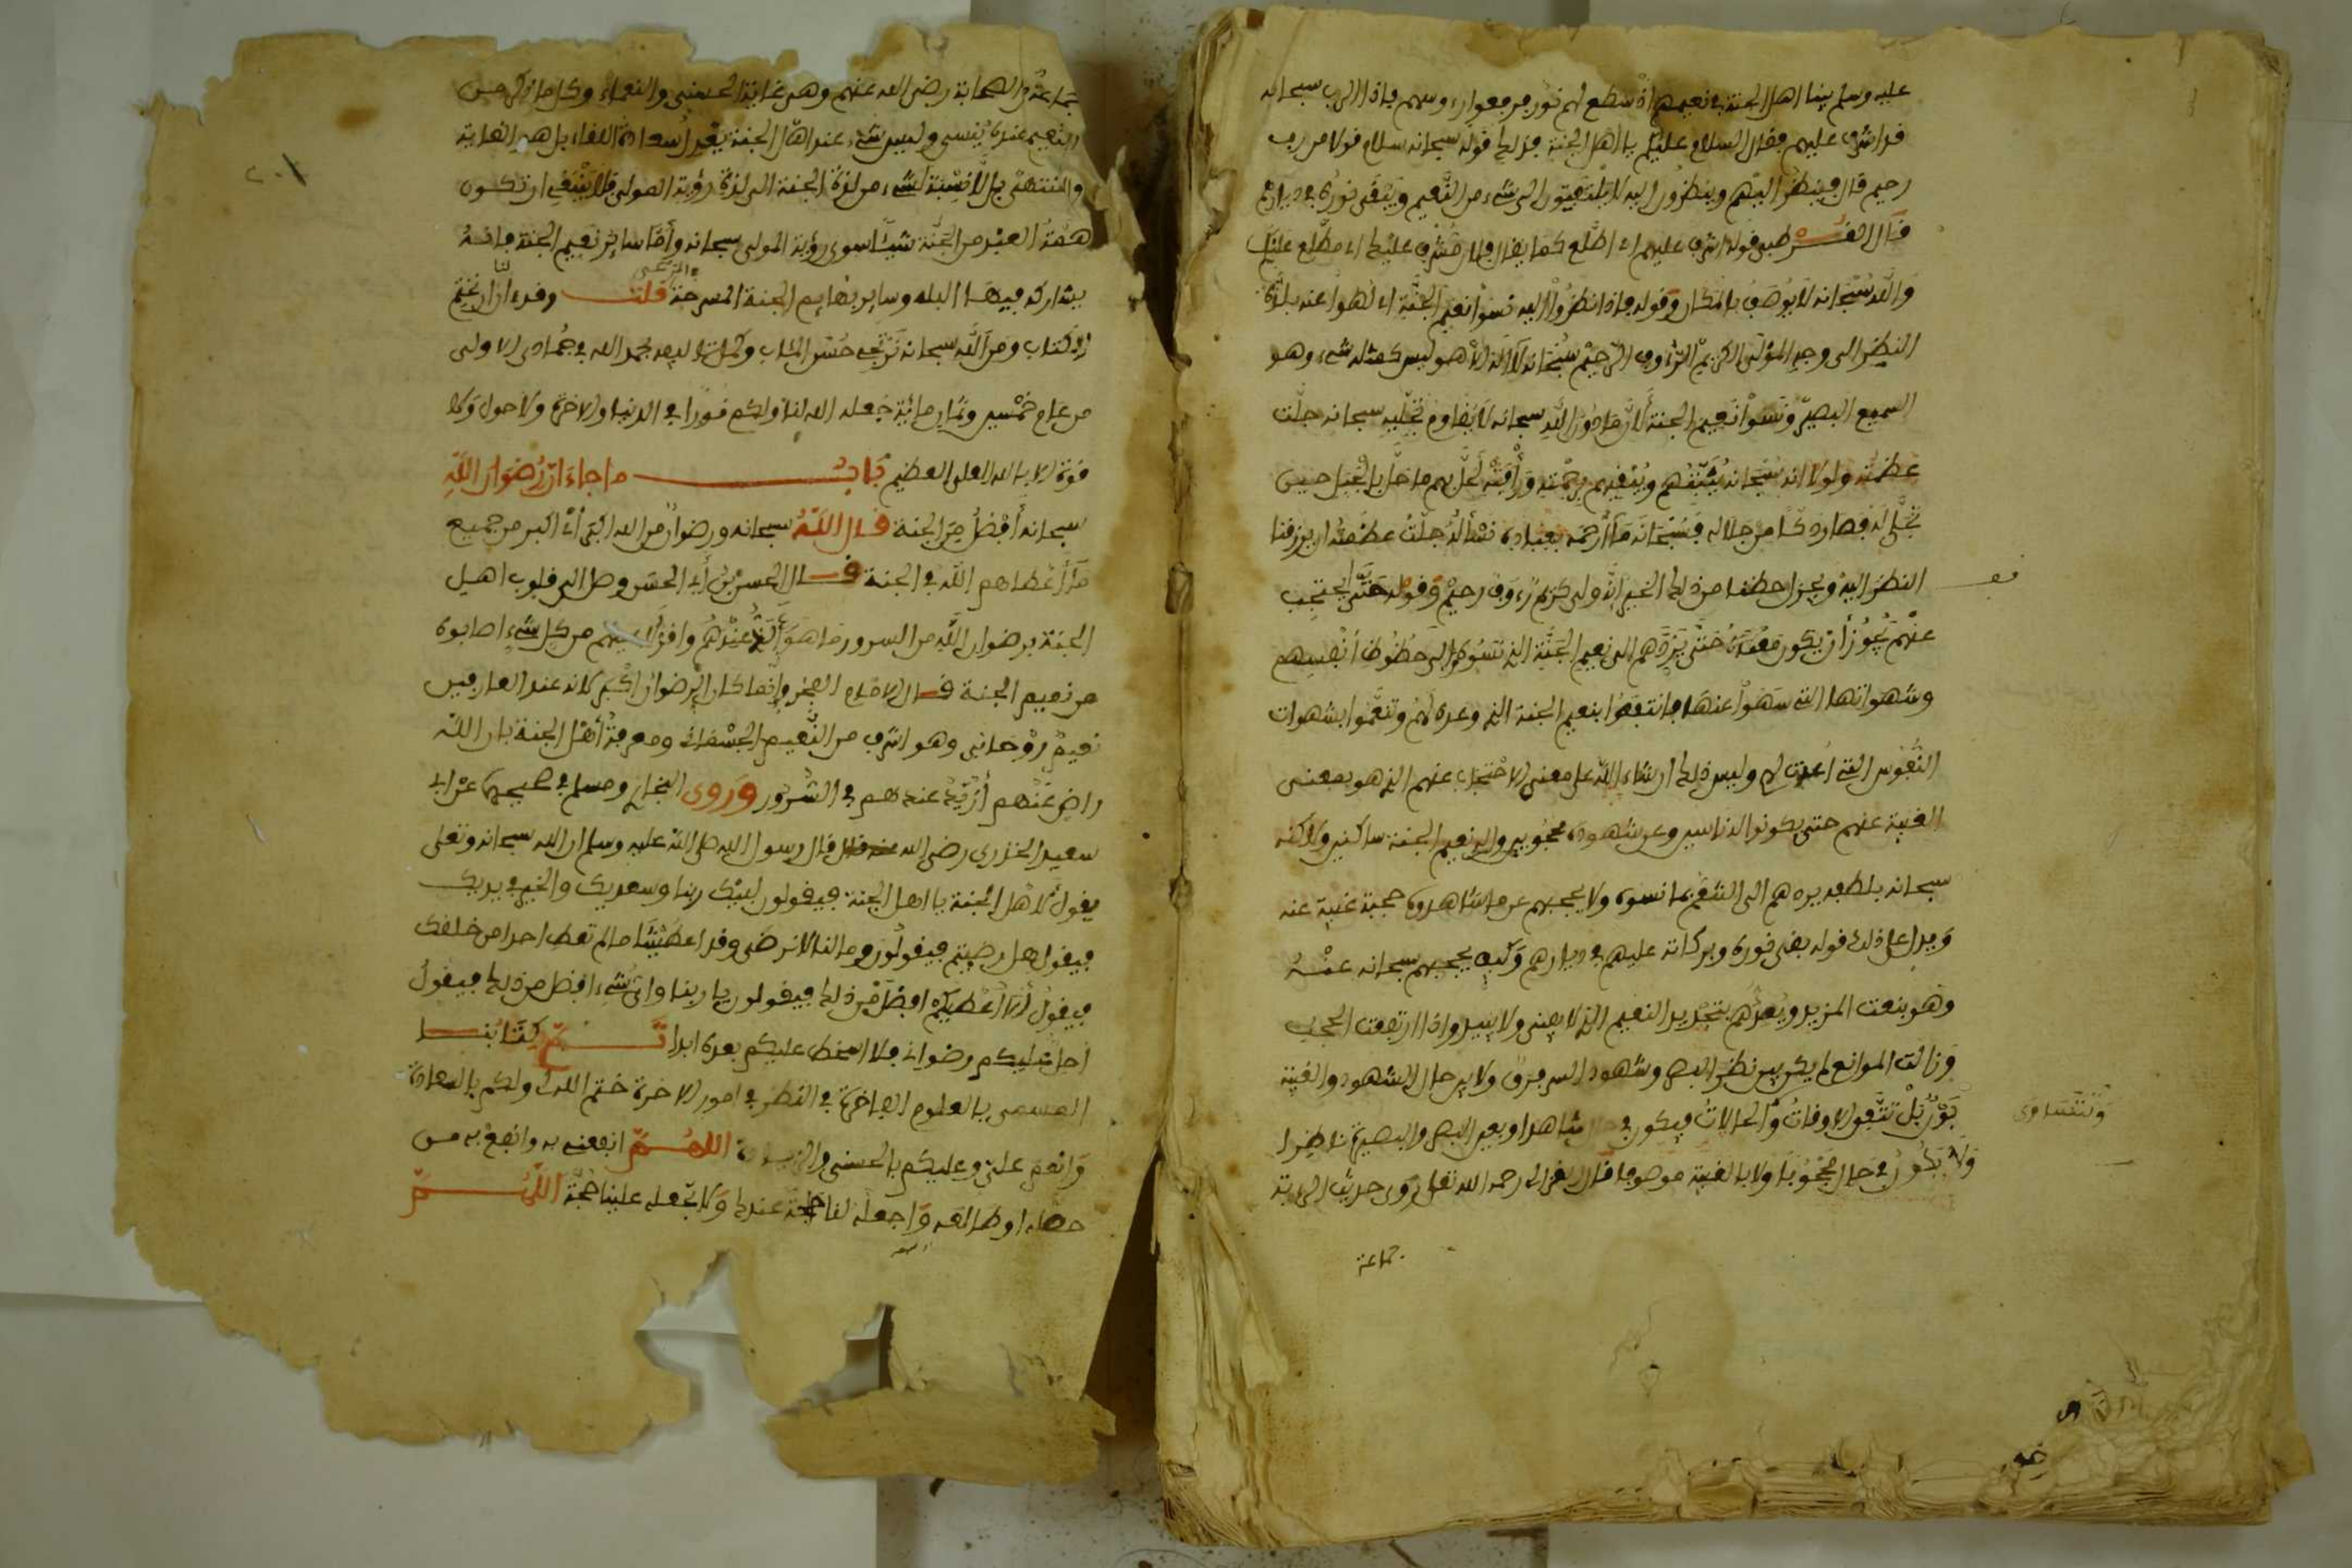 عليه وسلم بينا اهل الجنة في نعيمهم اذ سطع لهم نور من فوق رءوسهم فاذا الرب سبحانه
قد اشرف عليهم فقال السلام عليكم يا اهل الجنة فذلك قوله سبحانه سلام قولا من رب
رحيم قال فينظر اليهم وينظرون اليه لا يلتفتون الى شيء من النعيم ويبقى نوره في ديارهم
قال القرطبي قوله اشرف عليهم اي اطلع كما يقال فلان مشرف عليك اي مطلع عليك
والله سبحانه لا يوصف بالمكان وقوله فاذا نظروا اليه نسوا نعيم الجنة اي لهوا عنه بلذة
النظر الى وجه المولى الكريم الرءوف الرحيم سبحانه لا اله الا هو ليس كمثله شيء وهو
السميع البصير ونسوا نعيم الجنة لان ما دون الله سبحانه لا يقاوم تجليه سبحانه جلت
عظمته ولولا انه سبحانه يثبتهم ويبقيهم برحمته ورأفته لحل بهم ما حل بالجبل حين
تجلى له فصار دكا من جلاله فسبحانه ما ارحمه بعباده نسأله جلت عظمته ان يرزقنا
النظر اليه ويجزل حظنا من ذلك الخير انه ولي كريم رءوف رحيم وقوله حتى يحتجب
عنهم يجوز ان يكون معناه حتى يردهم الى نعيم الجنة الذي نسوه الى حظوظ انفسهم
وشهواتها التي سهوا عنها فانتفعوا بنعيم الجنة الذي وعده لهم وتنعموا بشهوات
النفوس التي اعدت لهم وليس ذلك ان شاء الله على معنى الاحتجاب عنهم الذي هو بمعنى
الغيبة عنهم حتى يكونوا له ناسين وعن شهوده محجوبين والى نعيم الجنة ساكنين ولاكنه
سبحانه بلطفه يردهم الى التنعم بما نسوه ولا يحجبهم عن ما شاهدوه حجبة غيبة عنه
ويدل على ذلك قوله يبقى نوره وبركاته عليهم في ديارهم وكيف يحجبهم سبحانه عنه
وهو ينعت المزيد ويعدهم بتجديد النعيم الذي لا يفنى ولا يبيد واذا ارتفعت الحجب
وزالت الموانع لم يكن بين نظر البصر وشهود السر فرق ولا بين حال الشهود والغيبة
بون بل تتفق الاوقات والحالات فيكون في حال شاهدا وبعين البصر والبصيرة ناظرا
وتتساوى
ولا يكون في حال محجوبا ولا بالغيبة موصوفا قال الغزالي رحمه الله تعالى روى حديث الرءية
جماعة
جماعة من الصحابة رضي الله عنهم وهي غاية الحسنى والنعماء وكل ما ذكر من
النعيم عنده ينسى وليس شيء عند اهل الجنة يعدل سعادة اللقاء بل هي الغاية
والمنتهى بل لا نسبة لشيء من لذة الجنة الى لذة رؤية المولى فلا ينبغي ان تكون
همة العبد من الجنة شيئا سوى رؤية المولى سبحانه واما ساير نعيم الجنة فانه
يشاركه فيها البله وساير بهايم الجنة المسرحة قلت وقد ءان لنا ان نختم
الكتاب ومن الله سبحانه نرتجي حسن المئاب وكملت تواليفه بحمد الله في جمادى الاولى
من عام خمسين وثمان مائة جعله الله لنا ولكم نورا في الدنيا والاخرة ولا حول ولا
قوة الا بالله العلي العظيم باب ما جاء ان رضوان الله
سبحانه افضل من الجنة قال الله سبحانه ورضوان من الله اكبر اي اكبر من جميع
ما اعطاهم الله في الجنة قال الحسن بن ابي الحسن وصل الى قلوب اهل
الجنة برضوان الله من السرور ما هو الذ عندهم واقر لاعينهم من كل شيء اصابوه
من نعيم الجنة قال الامام الفخر وانما كان الرضوان اكبر لانه عند العارفين
نعيم روحاني وهو اشرف من النعيم الجسماني ومعرفة اهل الجنة بان الله
راض عنهم ازيد عندهم في السرور وروى البخاري ومسلم في صحيحيهما عن ابي
سعيد الخدري رضي الله عنه قال قال رسول الله صلى الله عليه وسلم ان الله سبحانه وتعلى
يقول لاهل الجنة يا اهل الجنة فيقولون لبيك ربنا وسعديك والخير في يديك
فيقول هل رضيتم فيقولون وما لنا لا نرضى وقد اعطيتنا ما لم تعط احدا من خلقك
فيقول انا اعطيكم افضل من ذلك فيقولون يا ربنا واي شيء افضل من ذلك فيقول
احل عليكم رضواني فلا اسخط عليكم بعده ابدا تم كتابنا
المسمى بالعلوم الفاخرة في النظر في امور الاخرة ختم الله لي ولكم بالسعادة
وانعم علي وعليكم بالحسنى والزيادة اللهم انفعني به وانفع به من
حصله او طالعه واجعله لنا حجة عندك ولا تجعله علينا حجة اللهم